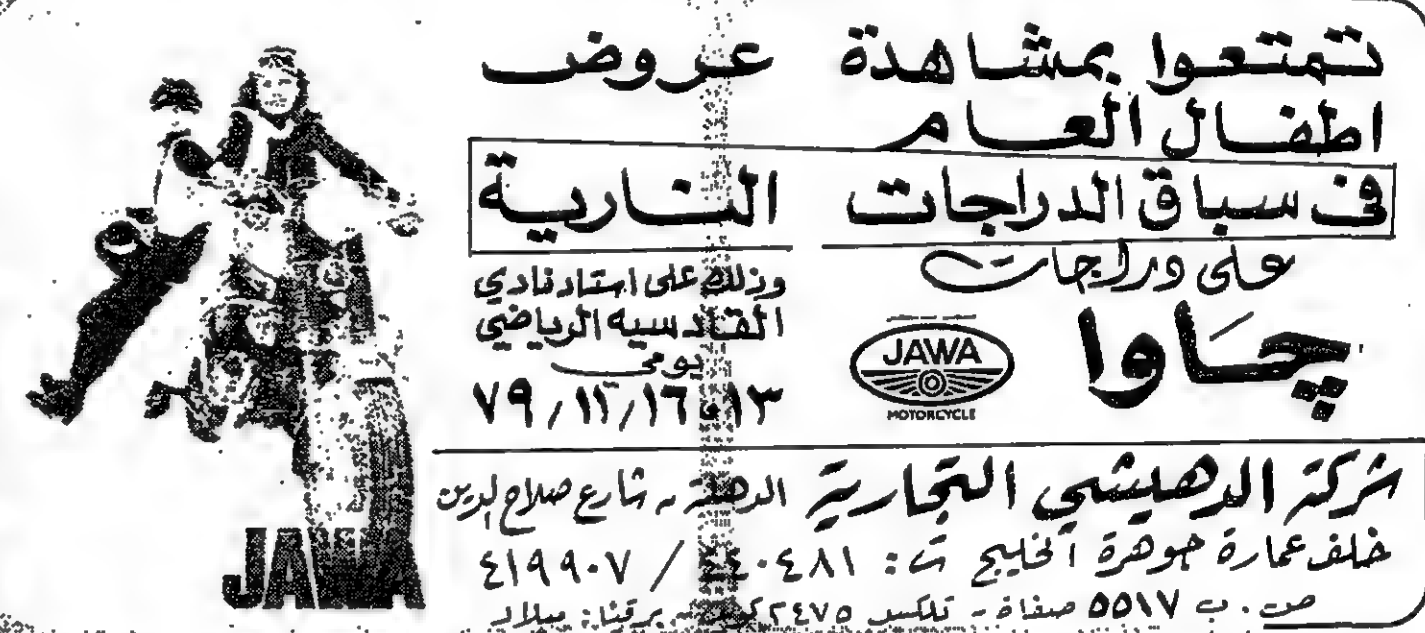 تمتعوا بمشاهدة عروض
اطفال العام
في سباق الدراجات النارية
على دراجات
چاوا
JAWA
MOTORCYCLE
وذلك على استاد نادي
القادسيه الرياضي
يومي
١٣ و ١٦ / ١٢ / ٧٩
JAWA
شركة الدهيشي التجارية الدهلة - شارع صلاح الدين
خلف عمارة جوهرة الخليج ت: ٤٤٠٤٨١ / ٤١٩٩٠٧
ص . ب ٥٥١٧ صفاة - تلكس ٢٤٧٥ برقيا: ميلاد